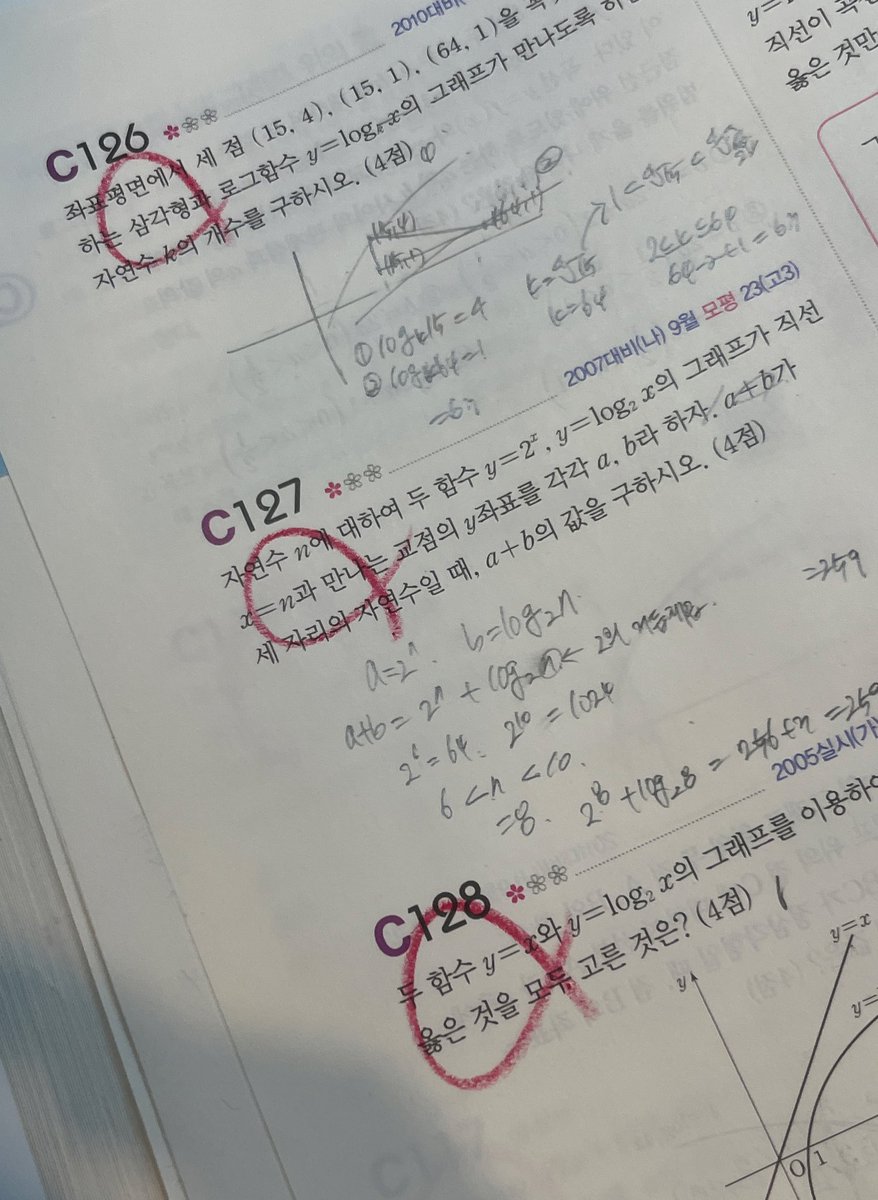 2010대비
C126
좌표평면에서 세 점 (15, 4), (15, 1), (64, 1)을
하는 삼각형과 로그함수 y=logₖ x의 그래프가 만나도록
자연수 k의 개수를 구하시오. (4점)
①
②
(15,4)
(15,1)
(64,1)
① logₖ15=4
② logₖ64=1
k=64
2≤k≤64
2007대비(나) 9월 모평 23(고3)
C127
자연수 n에 대하여 두 함수 y=2ˣ, y=log₂ x의 그래프가 직선
x=n과 만나는 교점의 y좌표를 각각 a, b라 하자. a+b가
세 자리의 자연수일 때, a+b의 값을 구하시오. (4점)
=259
a=2ⁿ. b=log₂n.
a+b=2ⁿ+log₂n
2⁶=64. 2¹⁰=1024
6<n<10.
=8. 2⁸+log₂8=
2005실시(가)
C128
두 함수 y=x와 y=log₂ x의 그래프를 이용하여
옳은 것을 모두 고른 것은? (4점)
y
y=x
y=
O 1
직선이
옳은 것만